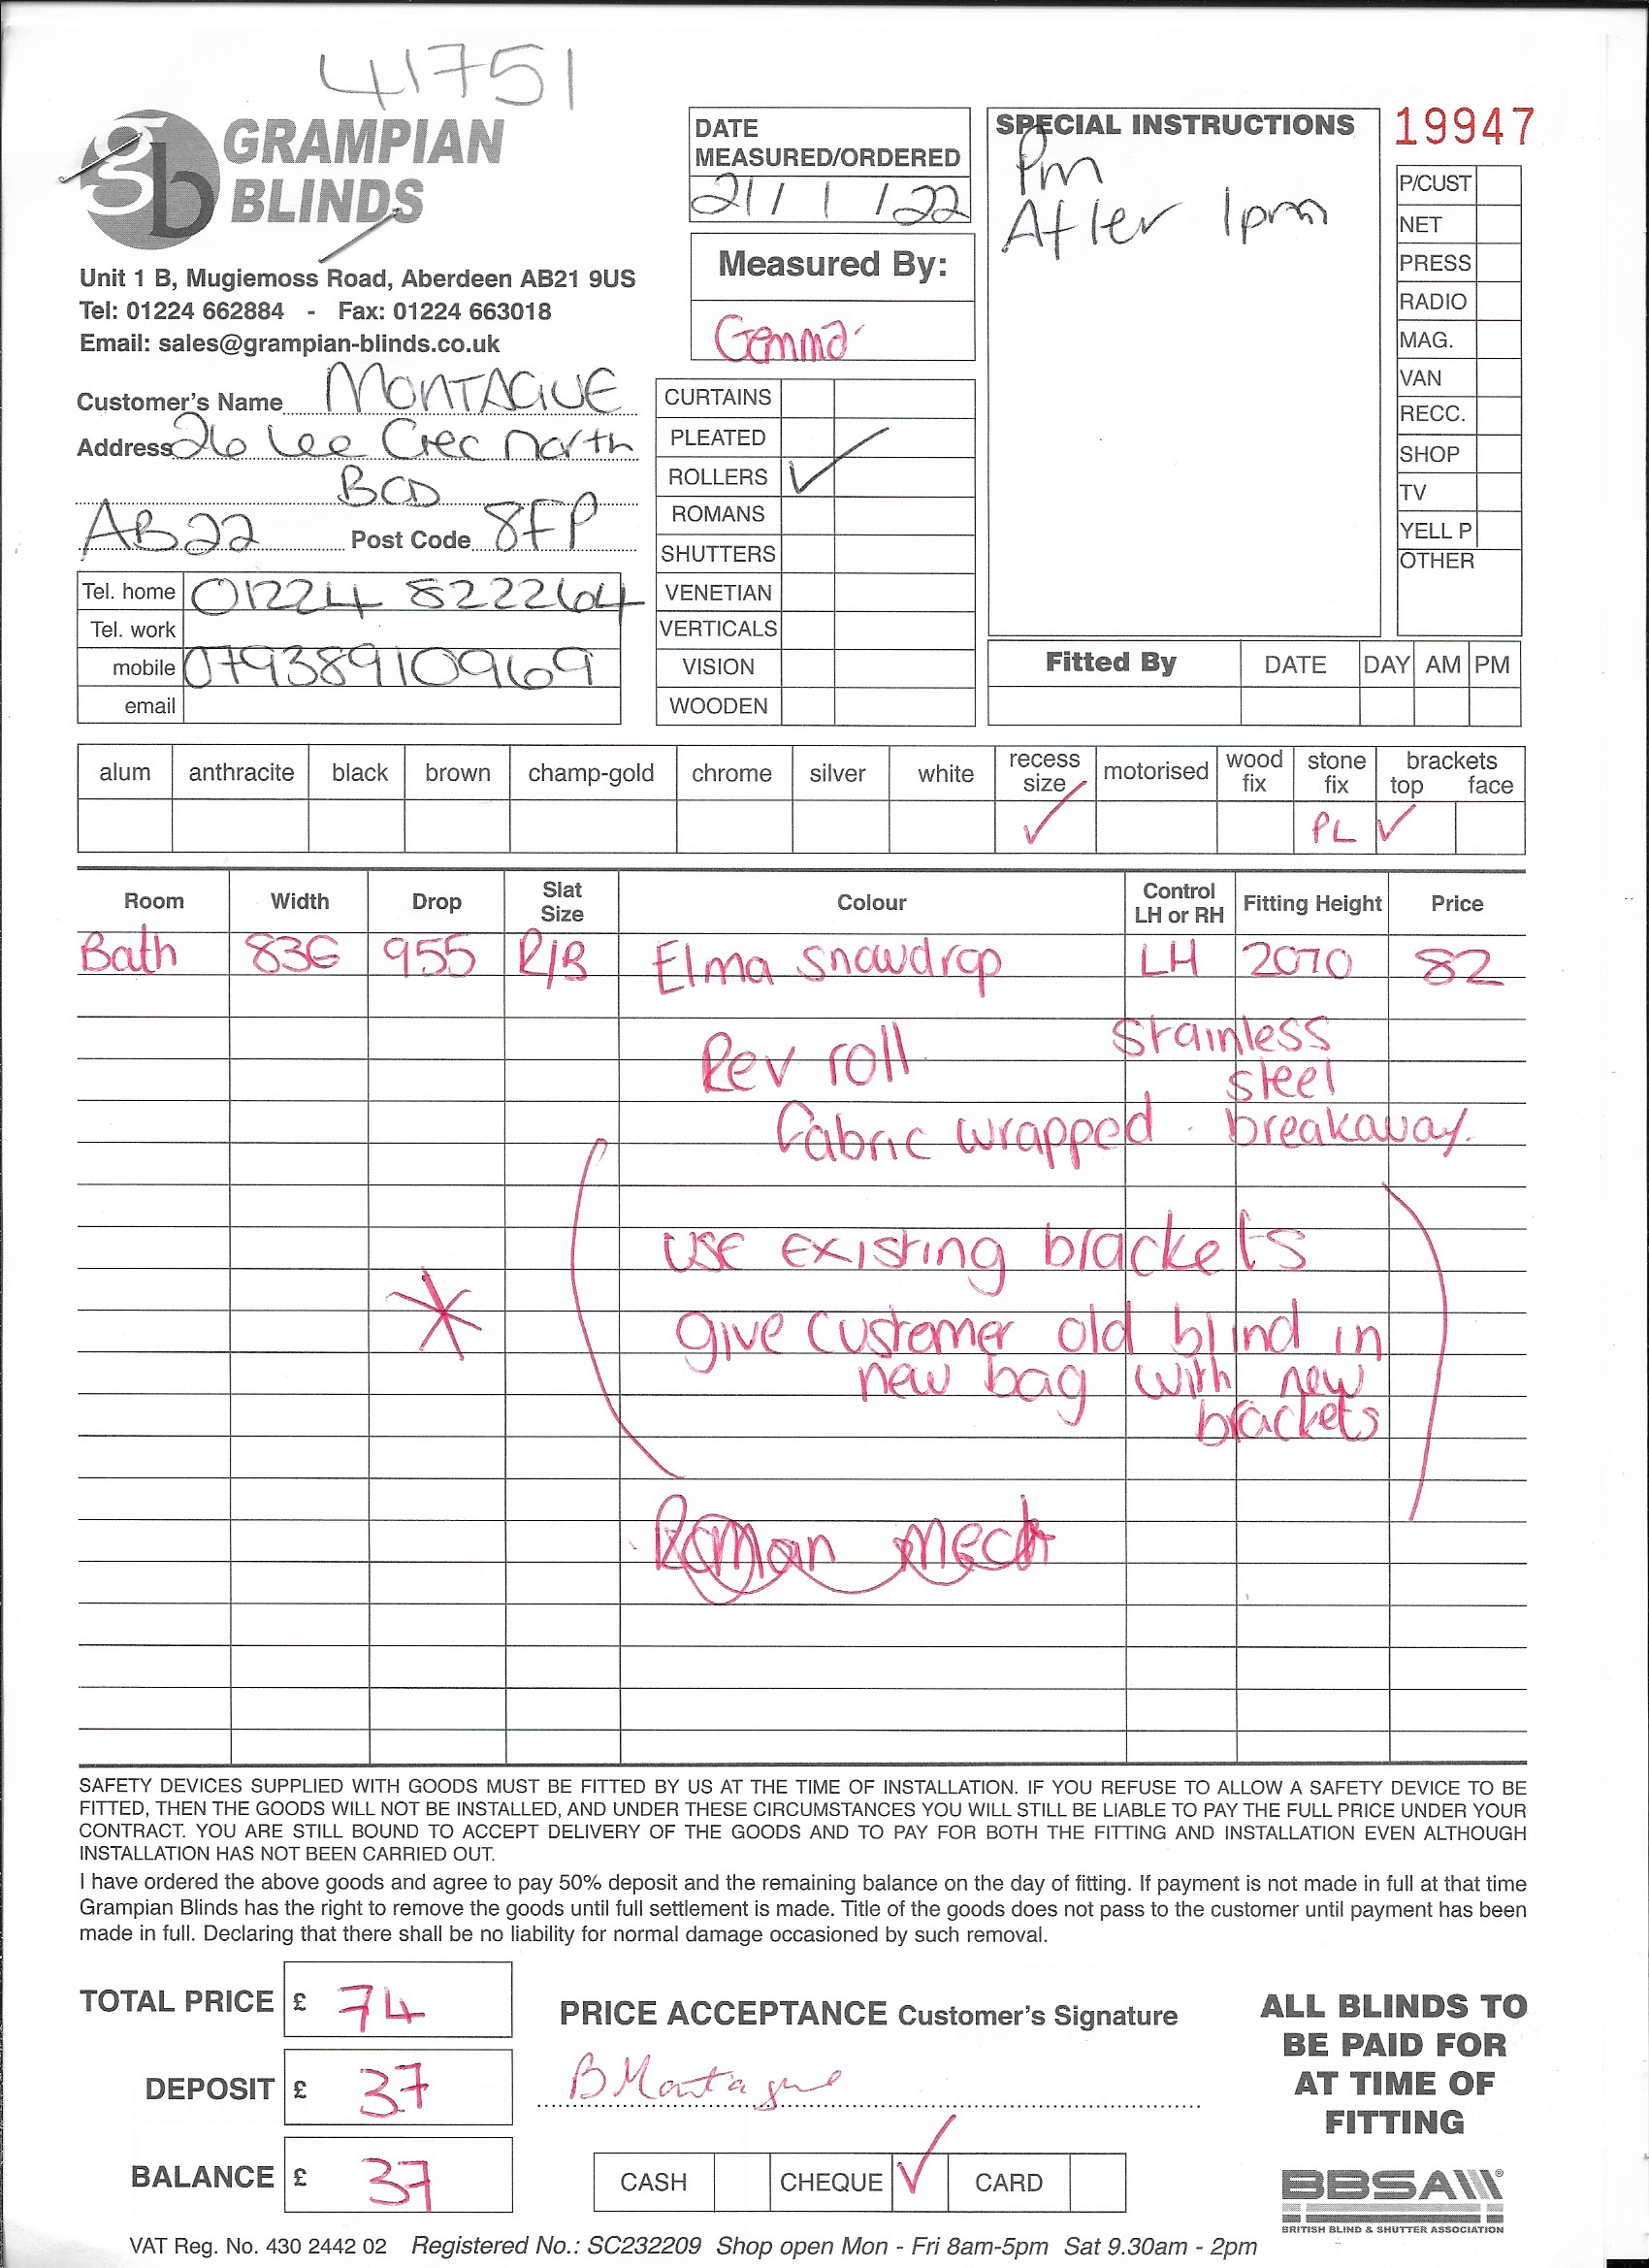 41751
gb GRAMPIAN
BLINDS
Unit 1 B, Mugiemoss Road, Aberdeen AB21 9US
Tel: 01224 662884 - Fax: 01224 663018
Email: sales@grampian-blinds.co.uk
Customer's Name MONTAGUE
Address 26 Lee Cres North
BOD
AB22 Post Code 8FP
Tel. home 01224 822264
Tel. work
mobile 07938910969
email
DATE
MEASURED/ORDERED
21/1/22
Measured By:
Gemma
CURTAINS
PLEATED
ROLLERS ✓
ROMANS
SHUTTERS
VENETIAN
VERTICALS
VISION
WOODEN
SPECIAL INSTRUCTIONS
Pm
After 1pm
19947
P/CUST
NET
PRESS
RADIO
MAG.
VAN
RECC.
SHOP
TV
YELL P
OTHER
Fitted By DATE DAY AM PM
alum anthracite black brown champ-gold chrome silver white recess size motorised wood fix stone fix brackets top face
✓ PL ✓
Room Width Drop Slat Size Colour Control LH or RH Fitting Height Price
Bath 836 955 R/B Elma snowdrop LH 2070 82
Rev roll Stainless
steel
fabric wrapped . breakaway.
use existing brackets
* give customer old blind in
new bag with new
brackets
Roman mech
SAFETY DEVICES SUPPLIED WITH GOODS MUST BE FITTED BY US AT THE TIME OF INSTALLATION. IF YOU REFUSE TO ALLOW A SAFETY DEVICE TO BE
FITTED, THEN THE GOODS WILL NOT BE INSTALLED, AND UNDER THESE CIRCUMSTANCES YOU WILL STILL BE LIABLE TO PAY THE FULL PRICE UNDER YOUR
CONTRACT. YOU ARE STILL BOUND TO ACCEPT DELIVERY OF THE GOODS AND TO PAY FOR BOTH THE FITTING AND INSTALLATION EVEN ALTHOUGH
INSTALLATION HAS NOT BEEN CARRIED OUT.
I have ordered the above goods and agree to pay 50% deposit and the remaining balance on the day of fitting. If payment is not made in full at that time
Grampian Blinds has the right to remove the goods until full settlement is made. Title of the goods does not pass to the customer until payment has been
made in full. Declaring that there shall be no liability for normal damage occasioned by such removal.
TOTAL PRICE £ 74
DEPOSIT £ 37
BALANCE £ 37
PRICE ACCEPTANCE Customer's Signature
B Montague
CASH CHEQUE ✓ CARD
ALL BLINDS TO
BE PAID FOR
AT TIME OF
FITTING
BBSA
BRITISH BLIND & SHUTTER ASSOCIATION
VAT Reg. No. 430 2442 02 Registered No.: SC232209 Shop open Mon - Fri 8am-5pm Sat 9.30am - 2pm